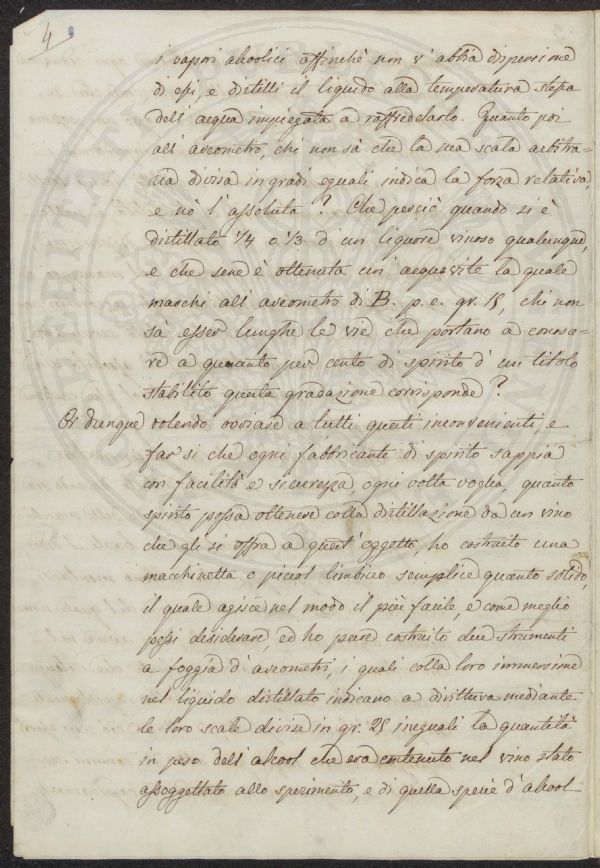 4
i vapori alcolici affinchè non v'abbia dispersione
di essi, e distilli il liquido alla temperatura stessa
dell'acqua impiegata a raffredelarlo. Quanto poi
all'areometro, chi non sà che la sua scala arbitra=
ria divisa in gradi eguali indica la forza relativa,
e nò l'assoluta? Che perciò quando si è
distillato 1/4 o 1/3 d'un liquore vinoso qualunque,
e che sene è ottenuta un'acquavite la quale
marchi all'areometro di B. p. e. gr. 15, chi non
sà esser lunghe le vie che portano a conosce=
re a quanto per cento di spirito d'un titolo
stabilito questa gradazione corrisponde?
Or dunque volendo ovviare a tutti questi inconvenienti, e
far si che ogni fabbricante di spirito sappia
con facilità e sicurezza ogni volta voglia, quanto
spirito possa ottenere colla distillazione da un vino
che gli si offra a quest'oggetto, ho costruito una
macchinetta o picciol limbico semplice quanto solido,
il quale agisce nel modo il più facile, e come meglio
possi desiderare, ed ho pure costruito due strumenti
a foggia d'areometri, i quali colla loro immersione
nel liquido distillato indicano a dirittura mediante
le loro scale divise in gr. 25 ineguali la quantità
in peso dell'alcool che era contenuto nel vino stato
assoggettato allo sperimento, e di quella specie d'alcool